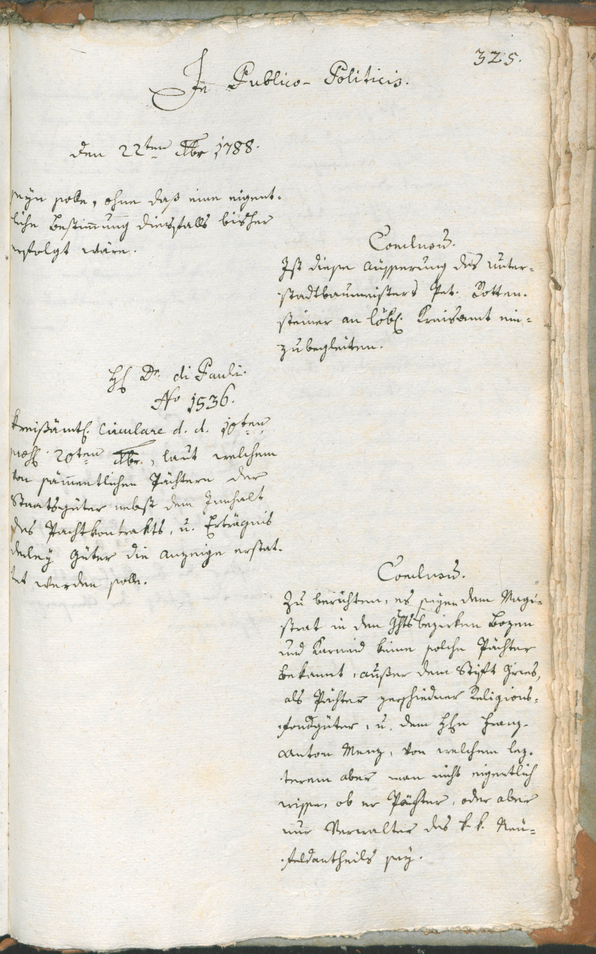 325.
In Publico-Politicis.
den 22ten Xbr 1788.
seyn solle, ohne daß eine eigent-
liche Bestimmung diesfalls bisher
erfolgt wäre.
Conclusum.
Ist diese Äusserung des Unter-
stadtbaumeisters Pet. Rotten-
steiner an löbl. Kreisamt ein-
zubegleiten.
H. Dr. di Pauli.
No 1536.
Kreißämtl. Circulare d. d. 10ten
20ten Xbr., laut welchem
von sämentlichen Pächtern der
Staatsgüter nebst dem Innhalt
des Pachtkontrakts, u. Erträgnis
derley Güter die Anzeige erstat-
tet werden solle.
Conclusum.
Zu berichten, es seyen dem Magi-
strat in den Ghtsbezirken Bozen
und Karneid keine solche Pächter
bekannt, außer dem Stift Gries,
als Pächter verschiedner Religions-
fondgüter, u. dem Hhn Franz
Anton Menz, von welchem lez-
terem aber man nicht eigentlich
wisse, ob er Pächter, oder aber
nur Verwalter des k. k. Neu-
feldantheils sey.